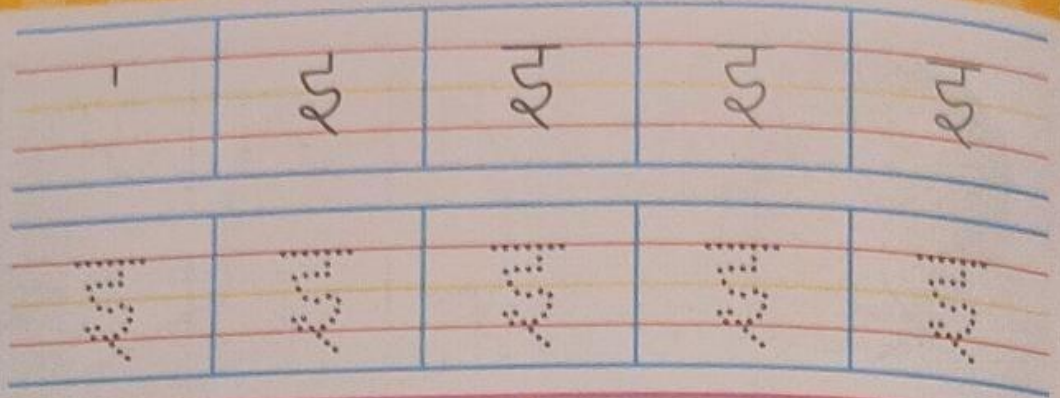 इ इ इ इ
इ इ इ इ इ